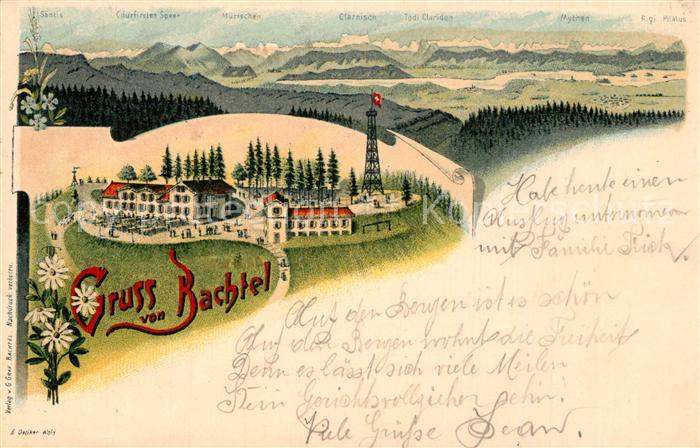 Säntis Churfirsten Speer Mürtschen Glärnisch Tödi Clariden Mythen Rigi Pilatus
Gruss
von
Bachtel
Habe heute einen
Ausflug unternomen
mit Familie Frick.
Auf den Bergen ist es schön
Auf den Bergen wohnt die Freiheit
Denn es lässt sich viele Meilen
Kein Gerichtsvollzieher sehn!
Viele Grüsse Jean.
Verlag v. G. Graf, BACHTEL. Nachdruck verboten.
E. Oetiker Wald